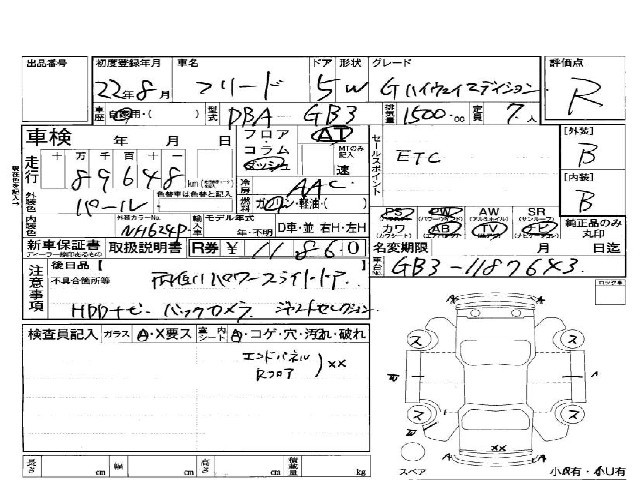 出品番号 初度登録年月 車名 ドア 形状 グレード 評価点
22年8月 フリード 5 W Gハイウェイエディション R
車歴 自家用・( ) 型式 DBA-GB3 排気量 1500.00 定員 7人
車検 年 月 日 フロア・コラム・ダッシュ AT MTのみ記入 速 セールスポイント ETC [外装] B
走行 十 万 千 百 十 一
89648 km 冷房 AAC
燃料 ガソリン・軽油・( ) [内装] B
外装色 パール 色替車は色替と記入
内装色 外装カラーNo. NH624P 輸入車 モデル年式 年・不明 D車・並 右H・左H
PS PW AW SR 純正品のみ丸印
カワ AB TV ナビ
新車保証書 取扱説明書 R券 ¥ 11860 名変期限 月 日迄
車台No. GB3-1187643
注意事項 後日品【 】 両側パワースライドドア
不具合箇所等
HDDナビ バックカメラ ジャストセレクション
ロック車
検査員記入 ガラス A・X要ス 室内 シート A・コゲ・穴・汚れ・破れ
エンドパネル
Rフロア ) XX
ス ス
A
ス ス
A XX A
長さ cm 幅 cm 高さ cm 積載量 kg スペア 小R有・小U有